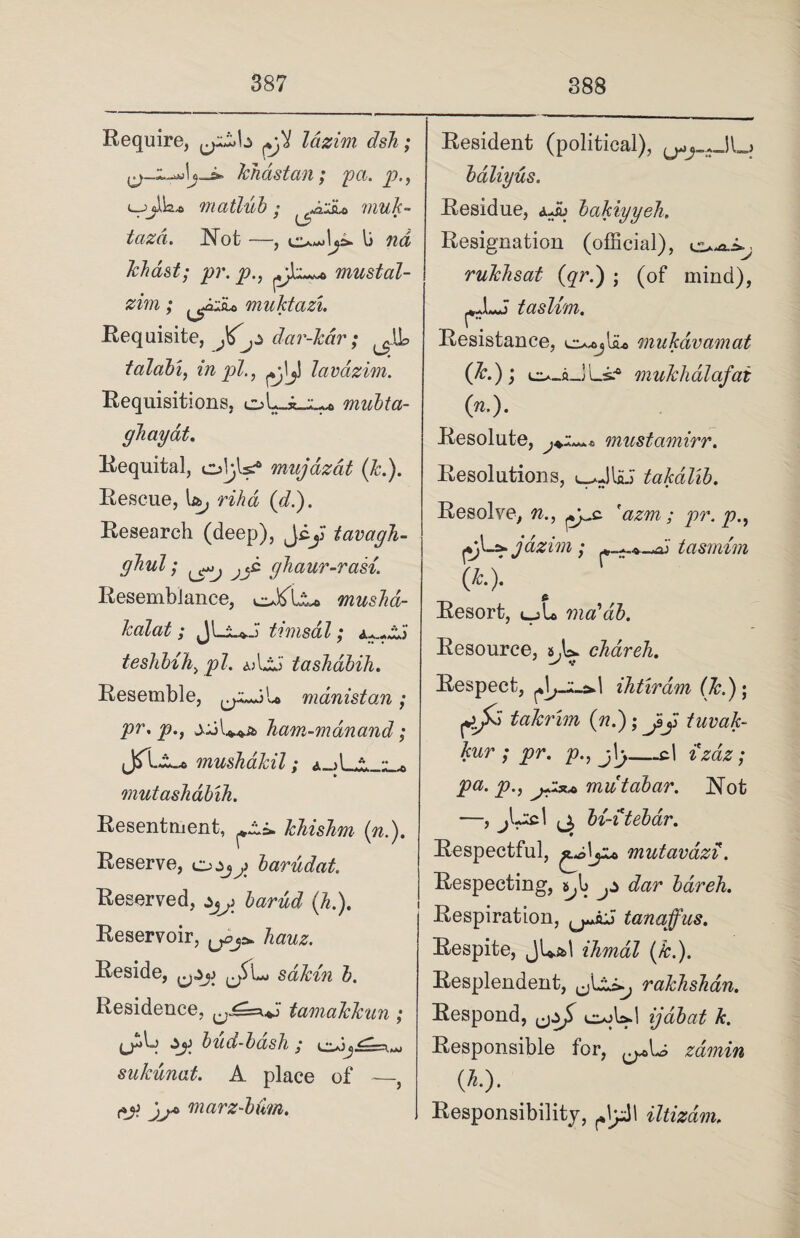 387
388
Require, لازم داشتن lázim dsh ;
خواستن khástan ; pa. p.,
مطلوب matlúb ; مقتضا muk-
tazá. Not —, نا خواست ná
khást; pr. p., مستلزم mustal-
zim ; مقتضی muktazí.
Requisite, درکار dar-kár ; طلبی
talabí, in pl., لوازم lavázim.
Requisitions, مبتغیات mubta-
ghayát.
Requital, مجازات mujázát (k.).
Rescue, رها rihá (d.).
Research (deep), توغل tavagh-
ghul ; غور رسی ghaur-rasí.
Resemblance, مشاکلت mushá-
kalat ; تمثال timsál ; تشبیه
teshbíh, pl. تشابه tashábih.
Resemble, مانستن mánistan ;
pr. p., همانند ham-mánand ;
مشاکل mushákil ; متشابه
mutashábih.
Resentment, خشم khishm (n.).
Reserve, برودت barúdat.
Reserved, برود barúd (h.).
Reservoir, حوض hauz.
Reside, ساکن بودن sákin b.
Residence, تمکن tamakkun ;
بود باش búd-básh ; سکونت
sukúnat. A place of —,
مرز بوم marz-búm.
Resident (political), بالیوس
báliyús.
Residue, بقیه bakiyyeh.
Resignation (official), رخصت
rukhsat (qr.) ; (of mind),
تسلیم taslím.
Resistance, مقاومت mukávamat
(k.) ; مخالفت mukhálafat
(n.).
Resolute, مستمر mustamirr.
Resolutions, تقالیب takálíb.
Resolve, n., عزم 'azm ; pr. p.,
جازم jázim ; تصمیم tasmím
(k.).
Resort, مآب ma'áb.
Resource, چاره cháreh.
Respect, احترام ihtirám (k.) ;
تکریم takrím (n.) ; توقر tuvak-
kur ; pr. p., اعزاز i'záz ;
pa. p., معتبر mu'tabar. Not
—, بی اعتبار bí-i'tebár.
Respectful, متواضع mutavází'.
Respecting, در باره dar báreh.
Respiration, تنفس tanaffus.
Respite, اهمال ihmál (k.).
Resplendent, رخشان rakhshán.
Respond, اجابت کردن ijábat k.
Responsible for, ضامن zámin
(h.).
Responsibility, التزام iltizám.